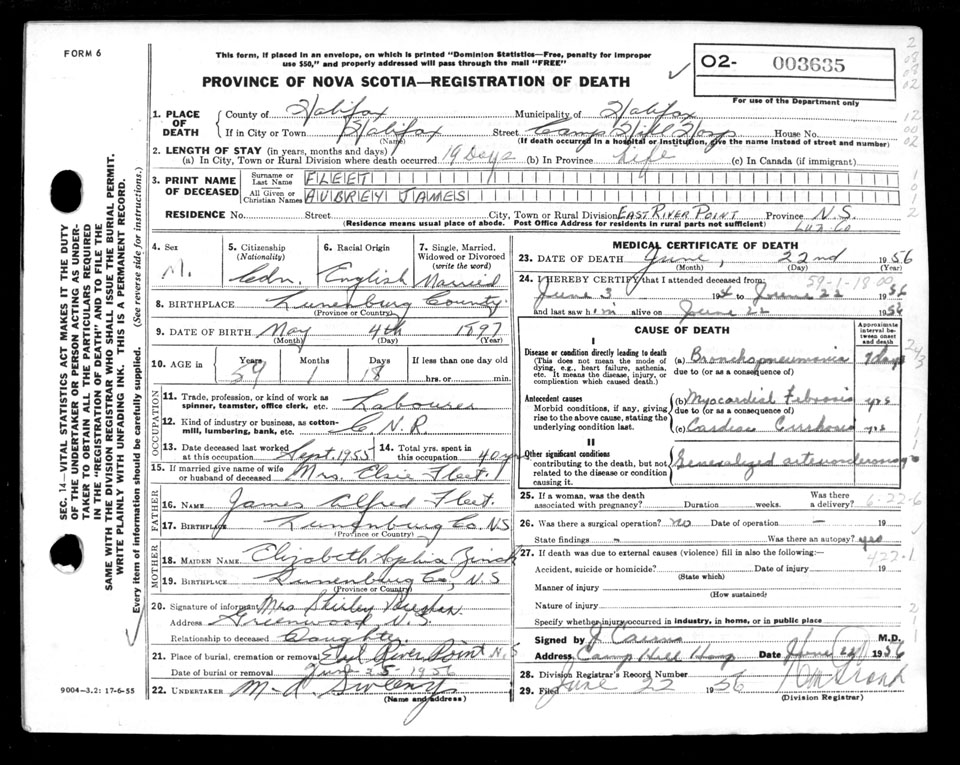 FORM 6
This form, if placed in an envelope, on which is printed "Dominion Statistics—Free, penalty for improper
use $50," and properly addressed will pass through the mail "FREE"
PROVINCE OF NOVA SCOTIA—REGISTRATION OF DEATH
02- 003635
For use of the Department only
1. PLACE OF DEATH
County of Halifax Municipality of Halifax
If in City or Town Halifax Street Camp Hill Hosp House No.
(Name) (If death occurred in a hospital or institution, give the name instead of street and number)
2. LENGTH OF STAY (in years, months and days)
(a) In City, Town or Rural Division where death occurred 19 Days (b) In Province Life (c) In Canada (if immigrant)
3. PRINT NAME OF DECEASED
Surname or Last Name FLEET
All Given or Christian Names AUBREY JAMES
RESIDENCE No. Street City, Town or Rural Division EAST RIVER POINT Province N.S.
(Residence means usual place of abode. Post Office Address for residents in rural parts not sufficient) LUN. CO
4. Sex M.
5. Citizenship (Nationality) Cdn.
6. Racial Origin English
7. Single, Married, Widowed or Divorced (write the word) Married
8. BIRTHPLACE Lunenburg County.
(Province or Country)
9. DATE OF BIRTH May 4th 1897
(Month) (Day) (Year)
10. AGE in Years 59 Months 1 Days 18 If less than one day old hrs. or min.
OCCUPATION
11. Trade, profession, or kind of work as spinner, teamster, office clerk, etc. Labourer
12. Kind of industry or business, as cotton-mill, lumbering, bank, etc. C.N.R.
13. Date deceased last worked at this occupation Sept. 1955
14. Total yrs. spent in this occupation 40 yrs
15. If married give name of wife or husband of deceased Mrs. Elsie Fleet
FATHER
16. NAME James Alfred Fleet.
17. BIRTHPLACE Lunenburg Co. NS
(Province or Country)
MOTHER
18. MAIDEN NAME Elizabeth Sophia Zinck
19. BIRTHPLACE Lunenburg Co, N.S
(Province or Country)
20. Signature of informant Mrs Shirley
Address Greenwood, N.S.
Relationship to deceased Daughter.
21. Place of burial, cremation or removal East River Point N.S
Date of burial or removal June 25 1956
22. UNDERTAKER M. A. Sweeny
(Name and address)
MEDICAL CERTIFICATE OF DEATH
23. DATE OF DEATH June, 22nd 1956
(Month) (Day) (Year)
59-1-18 00
24. I HEREBY CERTIFY that I attended deceased from:
June 3 1956 to June 22 1956
and last saw him alive on June 22 1956
CAUSE OF DEATH
Approximate interval between onset and death
I
Disease or condition directly leading to death
(This does not mean the mode of dying, e.g., heart failure, asthenia, etc. It means the disease, injury, or complication which caused death.)
(a) Bronchopneumonia 7 days
due to (or as a consequence of)
Antecedent causes
Morbid conditions, if any, giving rise to the above cause, stating the underlying condition last.
(b) Myocardial Fibrosis yrs
due to (or as a consequence of)
(c) Cardiac Cirrhosis yrs
II
Other significant conditions
contributing to the death, but not related to the disease or condition causing it.
Generalized arteriosclerosis
25. If a woman, was the death associated with pregnancy? Duration weeks. Was there a delivery?
6-22-6
26. Was there a surgical operation? no Date of operation – 19
State findings – Was there an autopsy? yes
27. If death was due to external causes (violence) fill in also the following:—
422.1
Accident, suicide or homicide? Date of injury 19
(State which)
Manner of injury
(How sustained)
Nature of injury
Specify whether injury occurred in industry, in home, or in public place
Signed by J. M.D.
Address Camp Hill Hosp Date June 1956
28. Division Registrar's Record Number
29. Filed June 22 1956
(Division Registrar)
SEC. 14—VITAL STATISTICS ACT MAKES IT THE DUTY
OF THE UNDERTAKER OR PERSON ACTING AS UNDER-
TAKER TO OBTAIN ALL THE PARTICULARS REQUIRED
IN THE "REGISTRATION OF DEATH" AND TO FILE THE
SAME WITH THE DIVISION REGISTRAR WHO SHALL ISSUE THE BURIAL PERMIT.
WRITE PLAINLY WITH UNFADING INK. THIS IS A PERMANENT RECORD.
Every item of information should be carefully supplied. (See reverse side for instructions.)
9004—3.2: 17-6-55